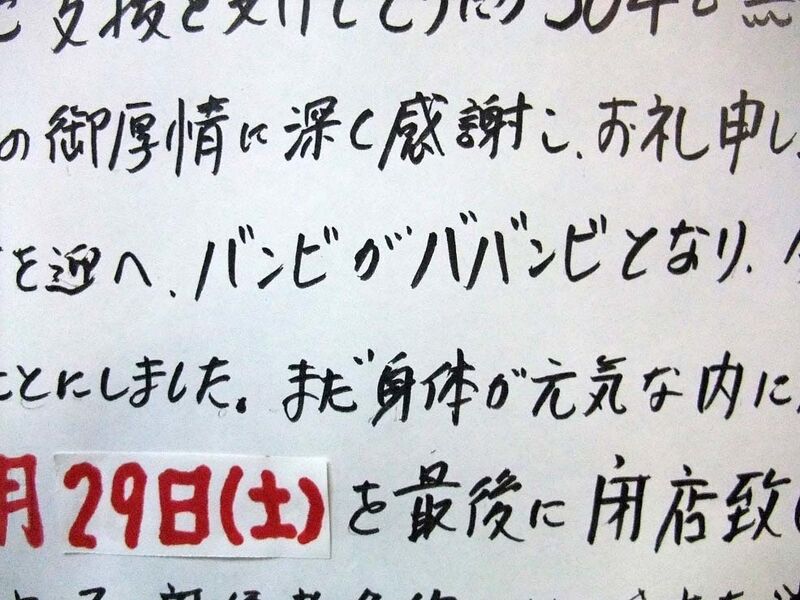 ご支援を受けてとうにか30年の
の御厚情に深く感謝し、お礼申し
を迎へ、バンビがババンビとなり、
ことにしました。まだ身体が元気な内に
月29日(土)を最後に閉店致し